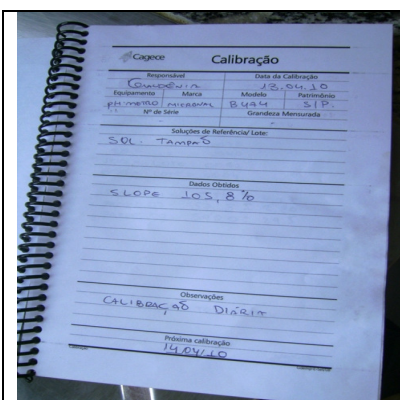 Cagece Calibração
Responsável Data da Calibração
13.04.10
Equipamento Marca Modelo Patrimônio
pHMETRO MICRONAL B444 S/P.
Nº de Série Grandeza Mensurada
Soluções de Referência/ Lote:
SOL. TAMPÃO
Dados Obtidos
SLOPE 105,8%
Observações
CALIBRAÇÃO DIÁRIA
Próxima calibração
14/04/10